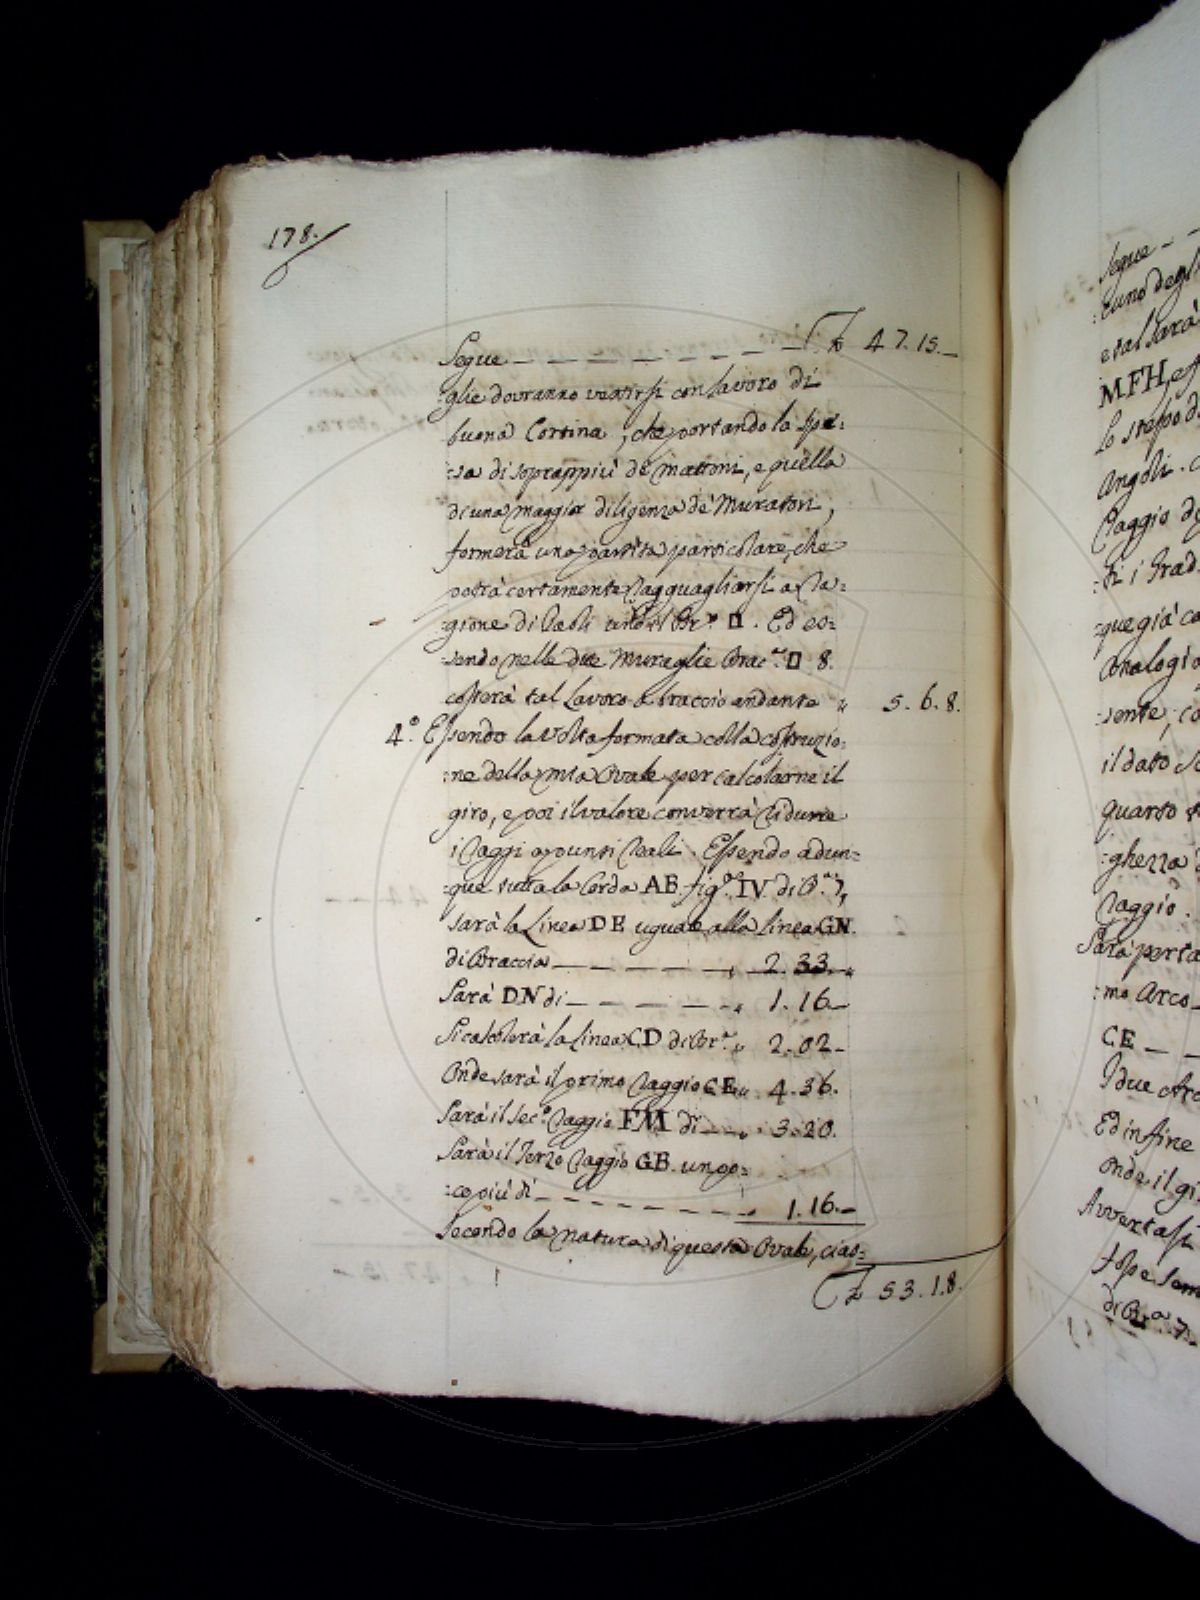 178.
Segue — — — — — — — — £ 47.15.—
:glie dovranno vestirsi con lavoro di
buona Cortina, che portando la spe:
:sa di soprappiù de mattoni, e quella
di una maggior diligenza de' Muratori,
formerà una partita particolare, che
potrà certamente ragguagliarsi a ra:
:gione di Paoli uno il Br.º □. Ed es:
:sendo nelle due Muraglie Brac.ª □ 8.
costerà tal Lavoro a braccio andante " 5.6.8.
4.º Essendo la Volta formata colla costruzio:
:ne della mia Ovale per calcolarne il
giro, e poi il valore converrà ridurre
i raggi a punti reali. Essendo adun:
:que tutta la Corda AB fig.ª IV di B.ª 7,
sarà la Linea DE uguale alla linea GN.
di Braccia — — — — — — " 2.33. "
Sarà DN di — — — — — " 1.16.—
Si calcolerà la Linea CD di Br.ª " 2.02.—
Onde sarà il primo raggio CE " 4.36.
Sarà il sec.º raggio FM di — — " 3.20.
Sarà il Terzo raggio GB. un po:
:co più di — — — — — — " 1.16.—
Secondo la natura di questa Ovale, cias:
£ 53.1.8.
Segue — —
:cuno degl
e tal sarà
MFH, e
lo stesso d
Angoli.
raggio d
:ti i Grad.
:que già co
analogi
:sente, co
il dato
quarto
:ghezza
raggio.
Sarà perta
:mo Arco —
CE — —
I due Arc
Ed in fine
Onde il gi
Avvertasi
di Br.ª 7.